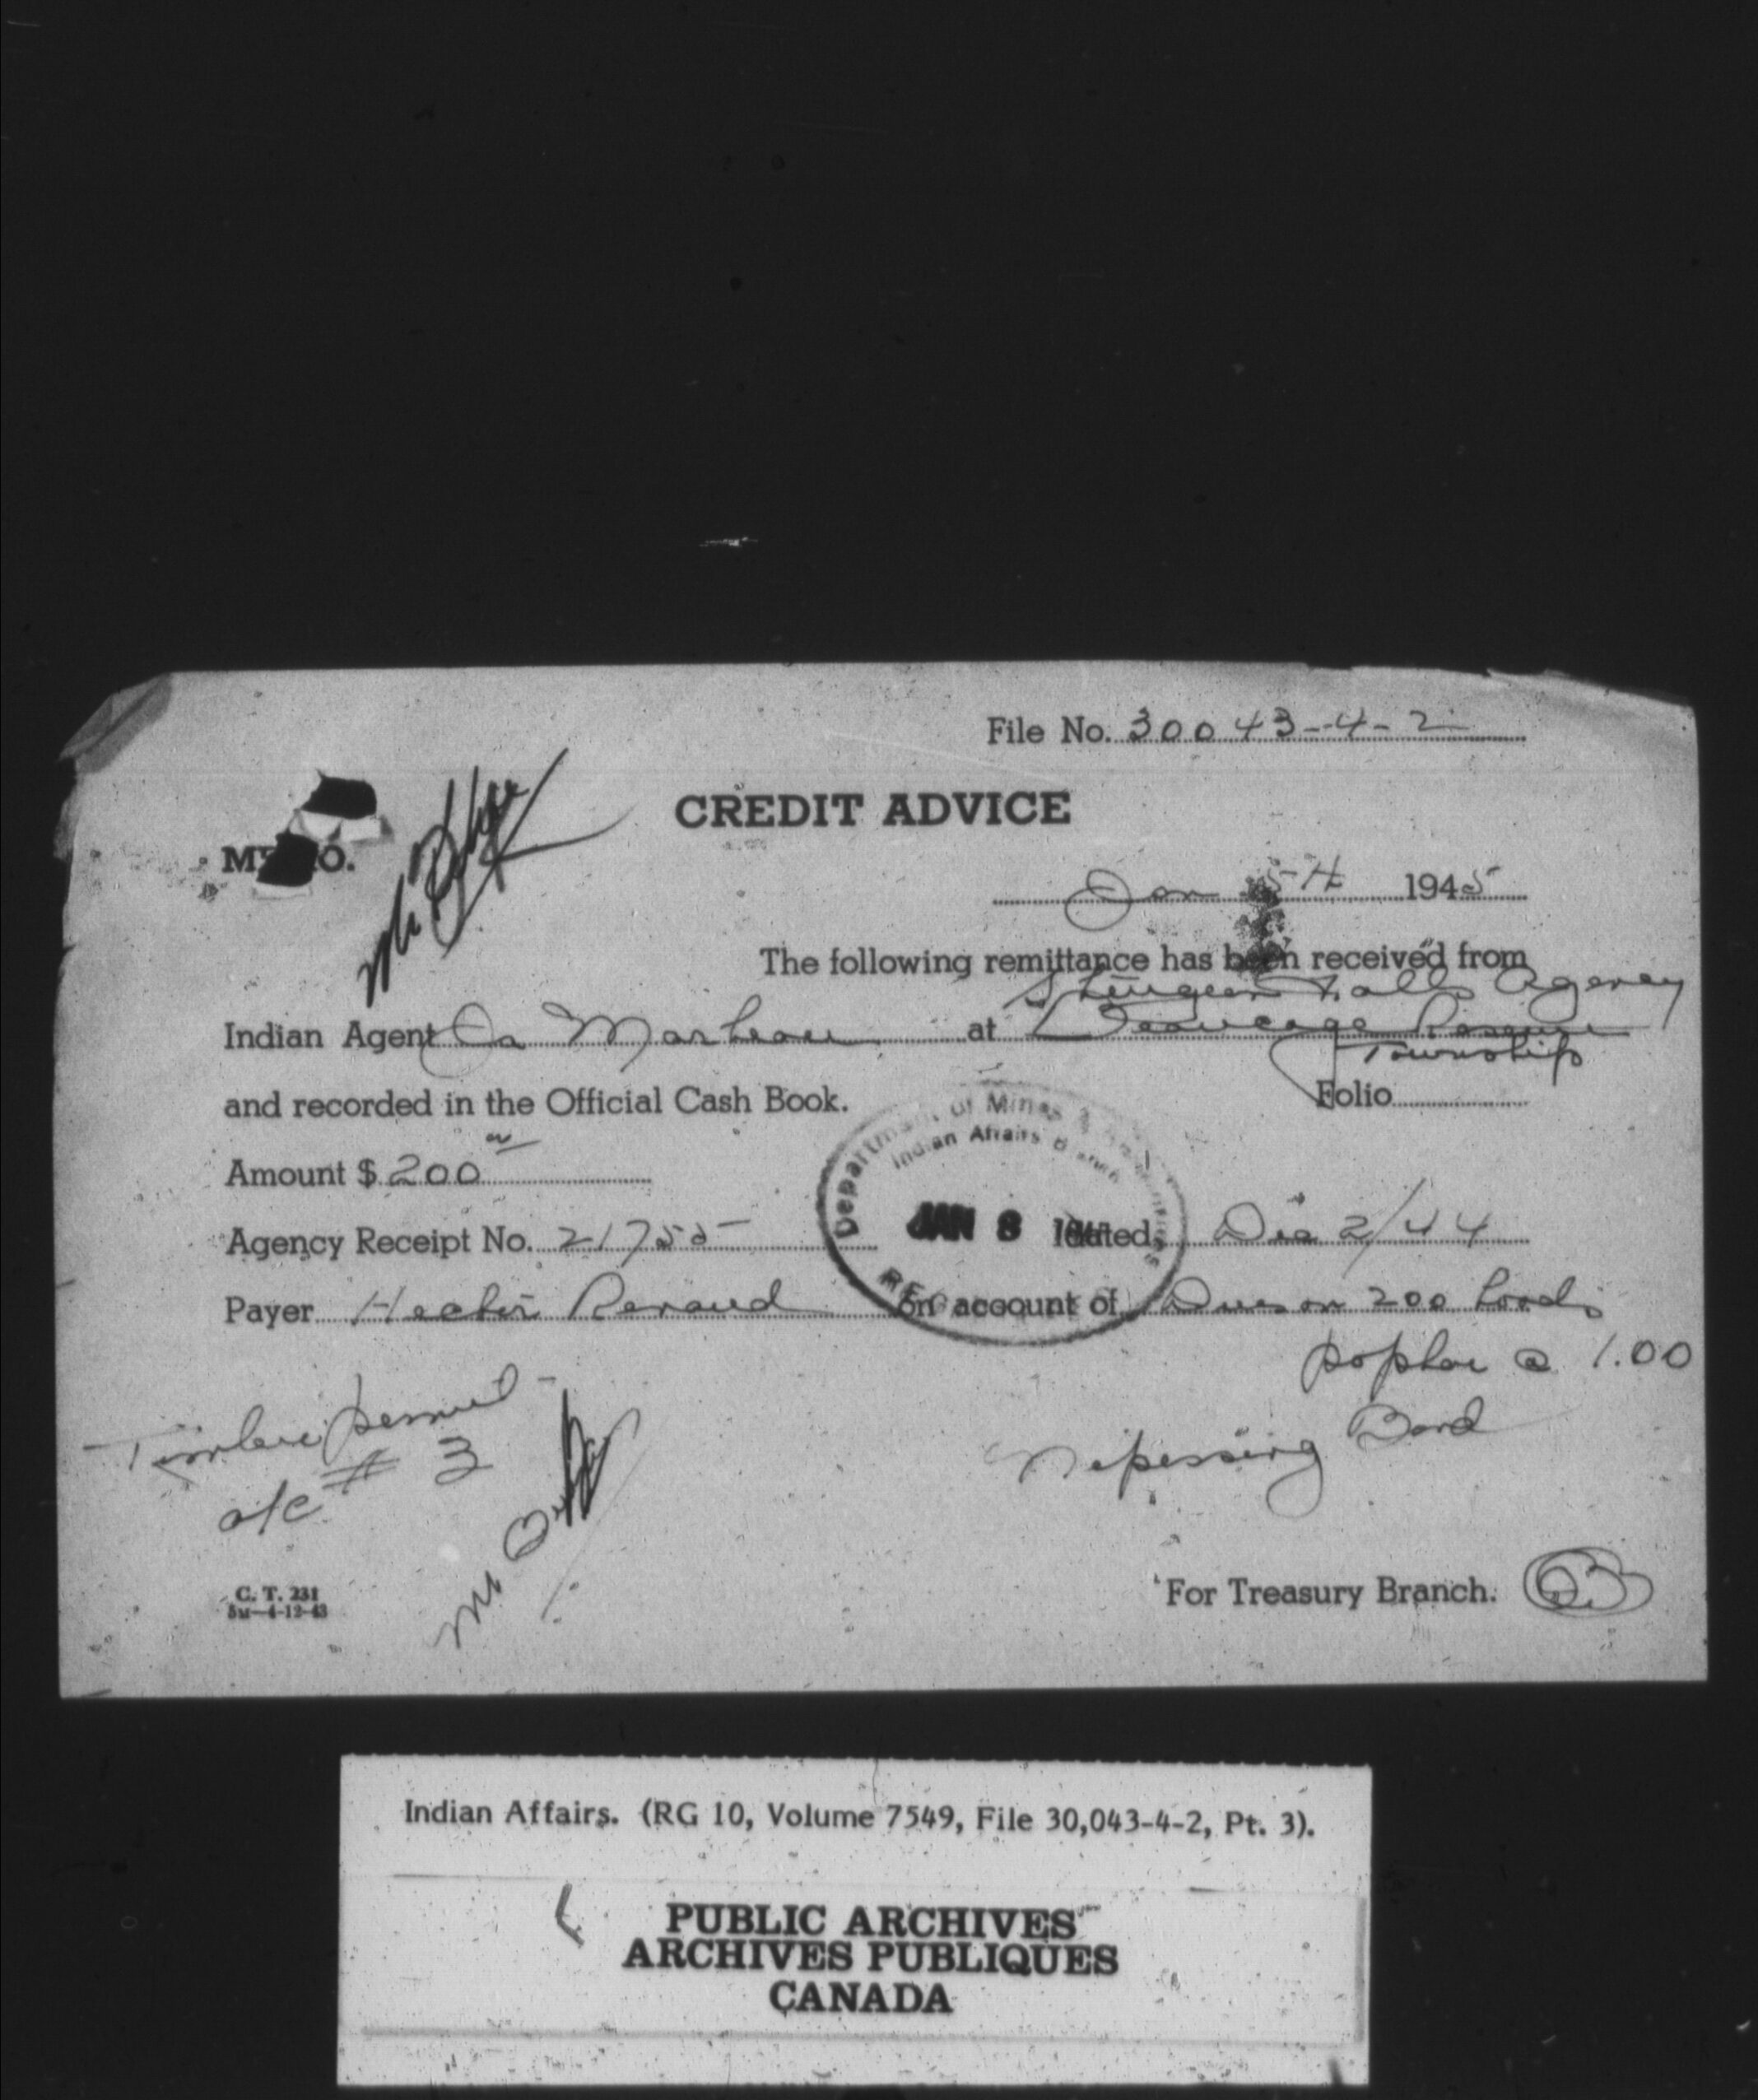 File No. 30043-4-2
CREDIT ADVICE
MEMO.
Jan 5th 1945
The following remittance has been received from
Sturgeon Falls Agency
Indian Agent Ja Marleau at Beaucage Reserve
Township
and recorded in the Official Cash Book. Folio
Amount $ 200
Department of Mines & Resources
Indian Affairs Branch
JAN 8
Agency Receipt No. 21755 dated Dec 2/44
Payer Hector Renaud on account of Dues on 200 Cords
poplar @ 1.00
Timber permit
a/c # 3
Nipissing Band
C. T. 231
5M-4-12-43
For Treasury Branch.
Indian Affairs. (RG 10, Volume 7549, File 30,043-4-2, Pt. 3).
PUBLIC ARCHIVES
ARCHIVES PUBLIQUES
CANADA